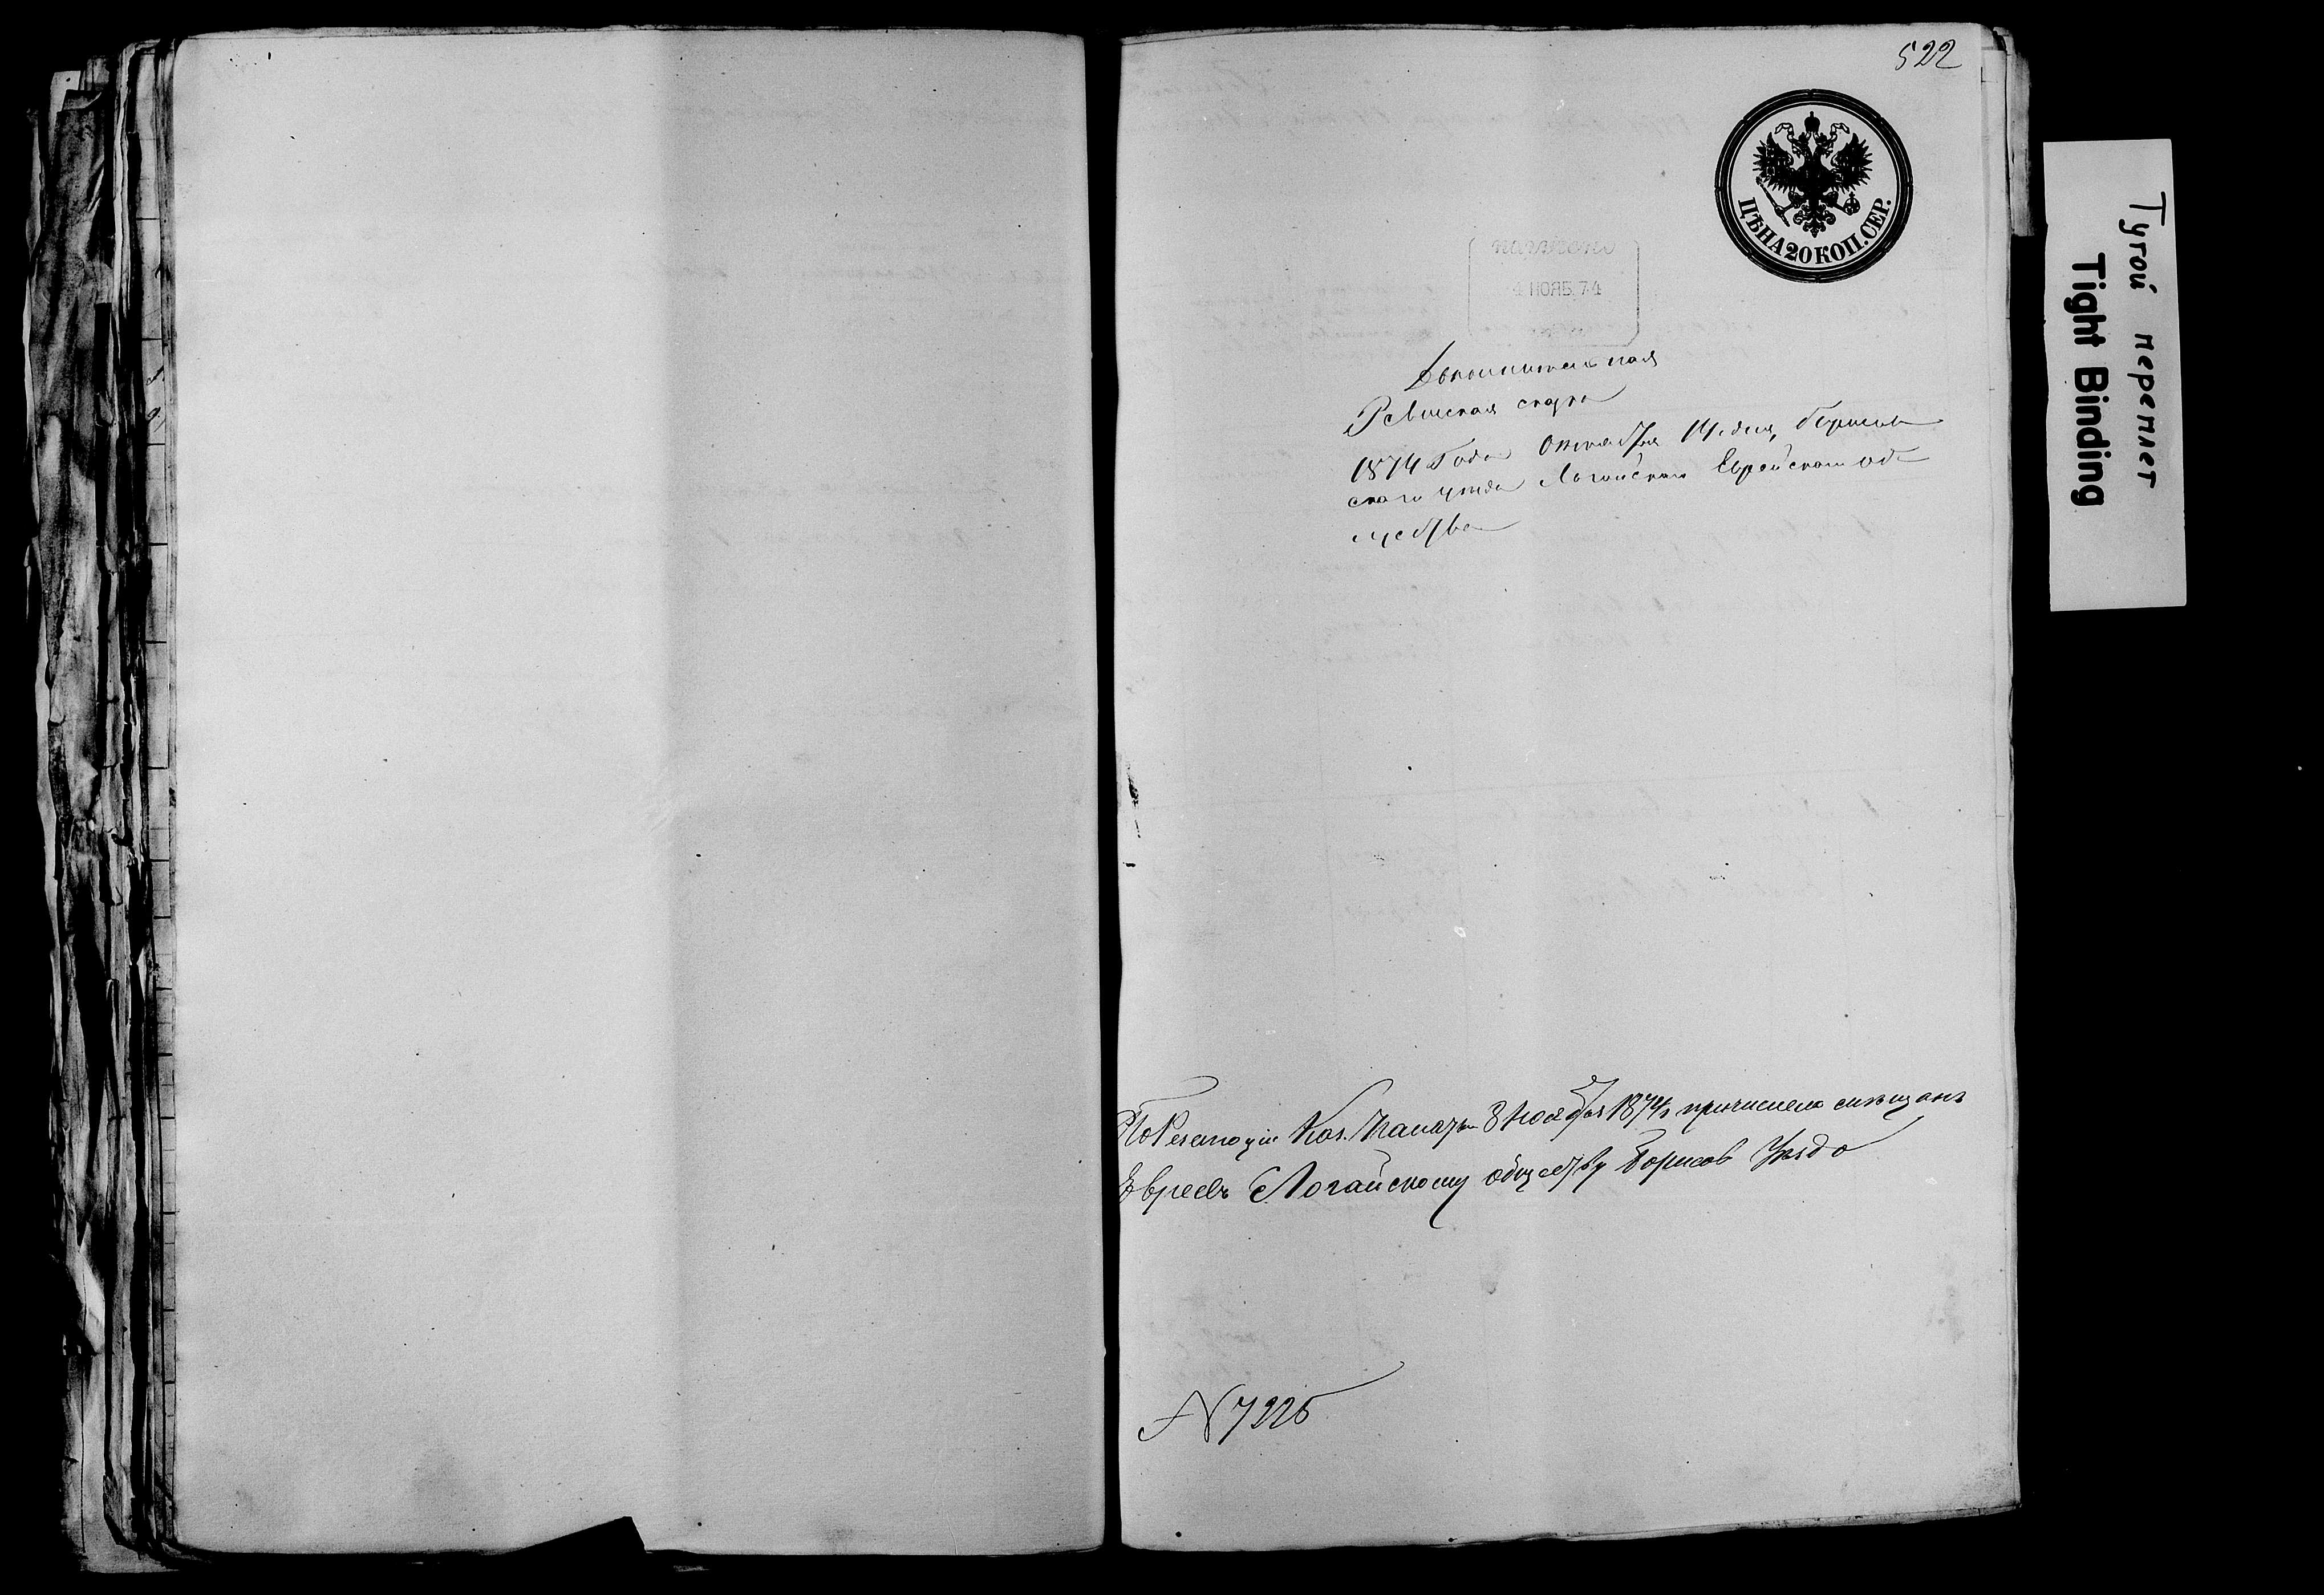 522
ЦѢНА 20 КОП. СЕР.
получено
4 НОЯБ. 74
Дополнительная
Ревизская сказка
1874 Года Октября 14 дня, Борисов
скаго уѣзда Логойскаго Еврейскаго об
щества
По Резолюціи Каз. Палаты 8 Ноября 1874 г. причислено мѣщанъ
Евреевъ Логойскому обществу Борисов Уѣзда
N 7225
Тугой переплет
Tight Binding